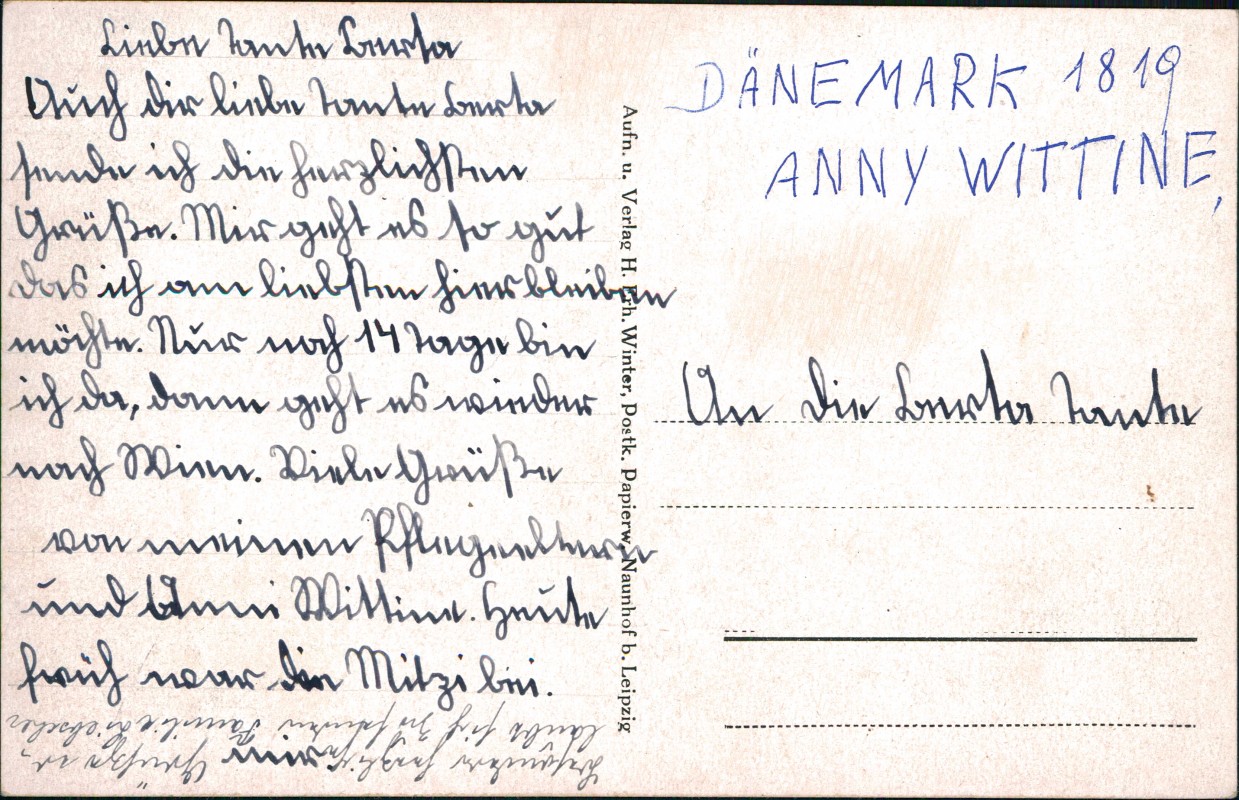 Liebe Tante Berta
Auch dir liebe Tante Berta
sende ich die herzlichsten
Grüße. Mir geht es so gut
das ich am liebsten hier bleiben
möchte. Nur noch 14 Tage bin
ich da, dann geht es wieder
nach Wien. Viele Grüße
von meinen Pflegeeltern
und Anni Wittine. Heute
früh war die Mitzi bei
mir.
Aufn. u. Verlag H. Erh. Winter, Postk. Papierw. Naunhof b. Leipzig
DÄNEMARK 1819
ANNY WITTINE,
An die Berta Tante